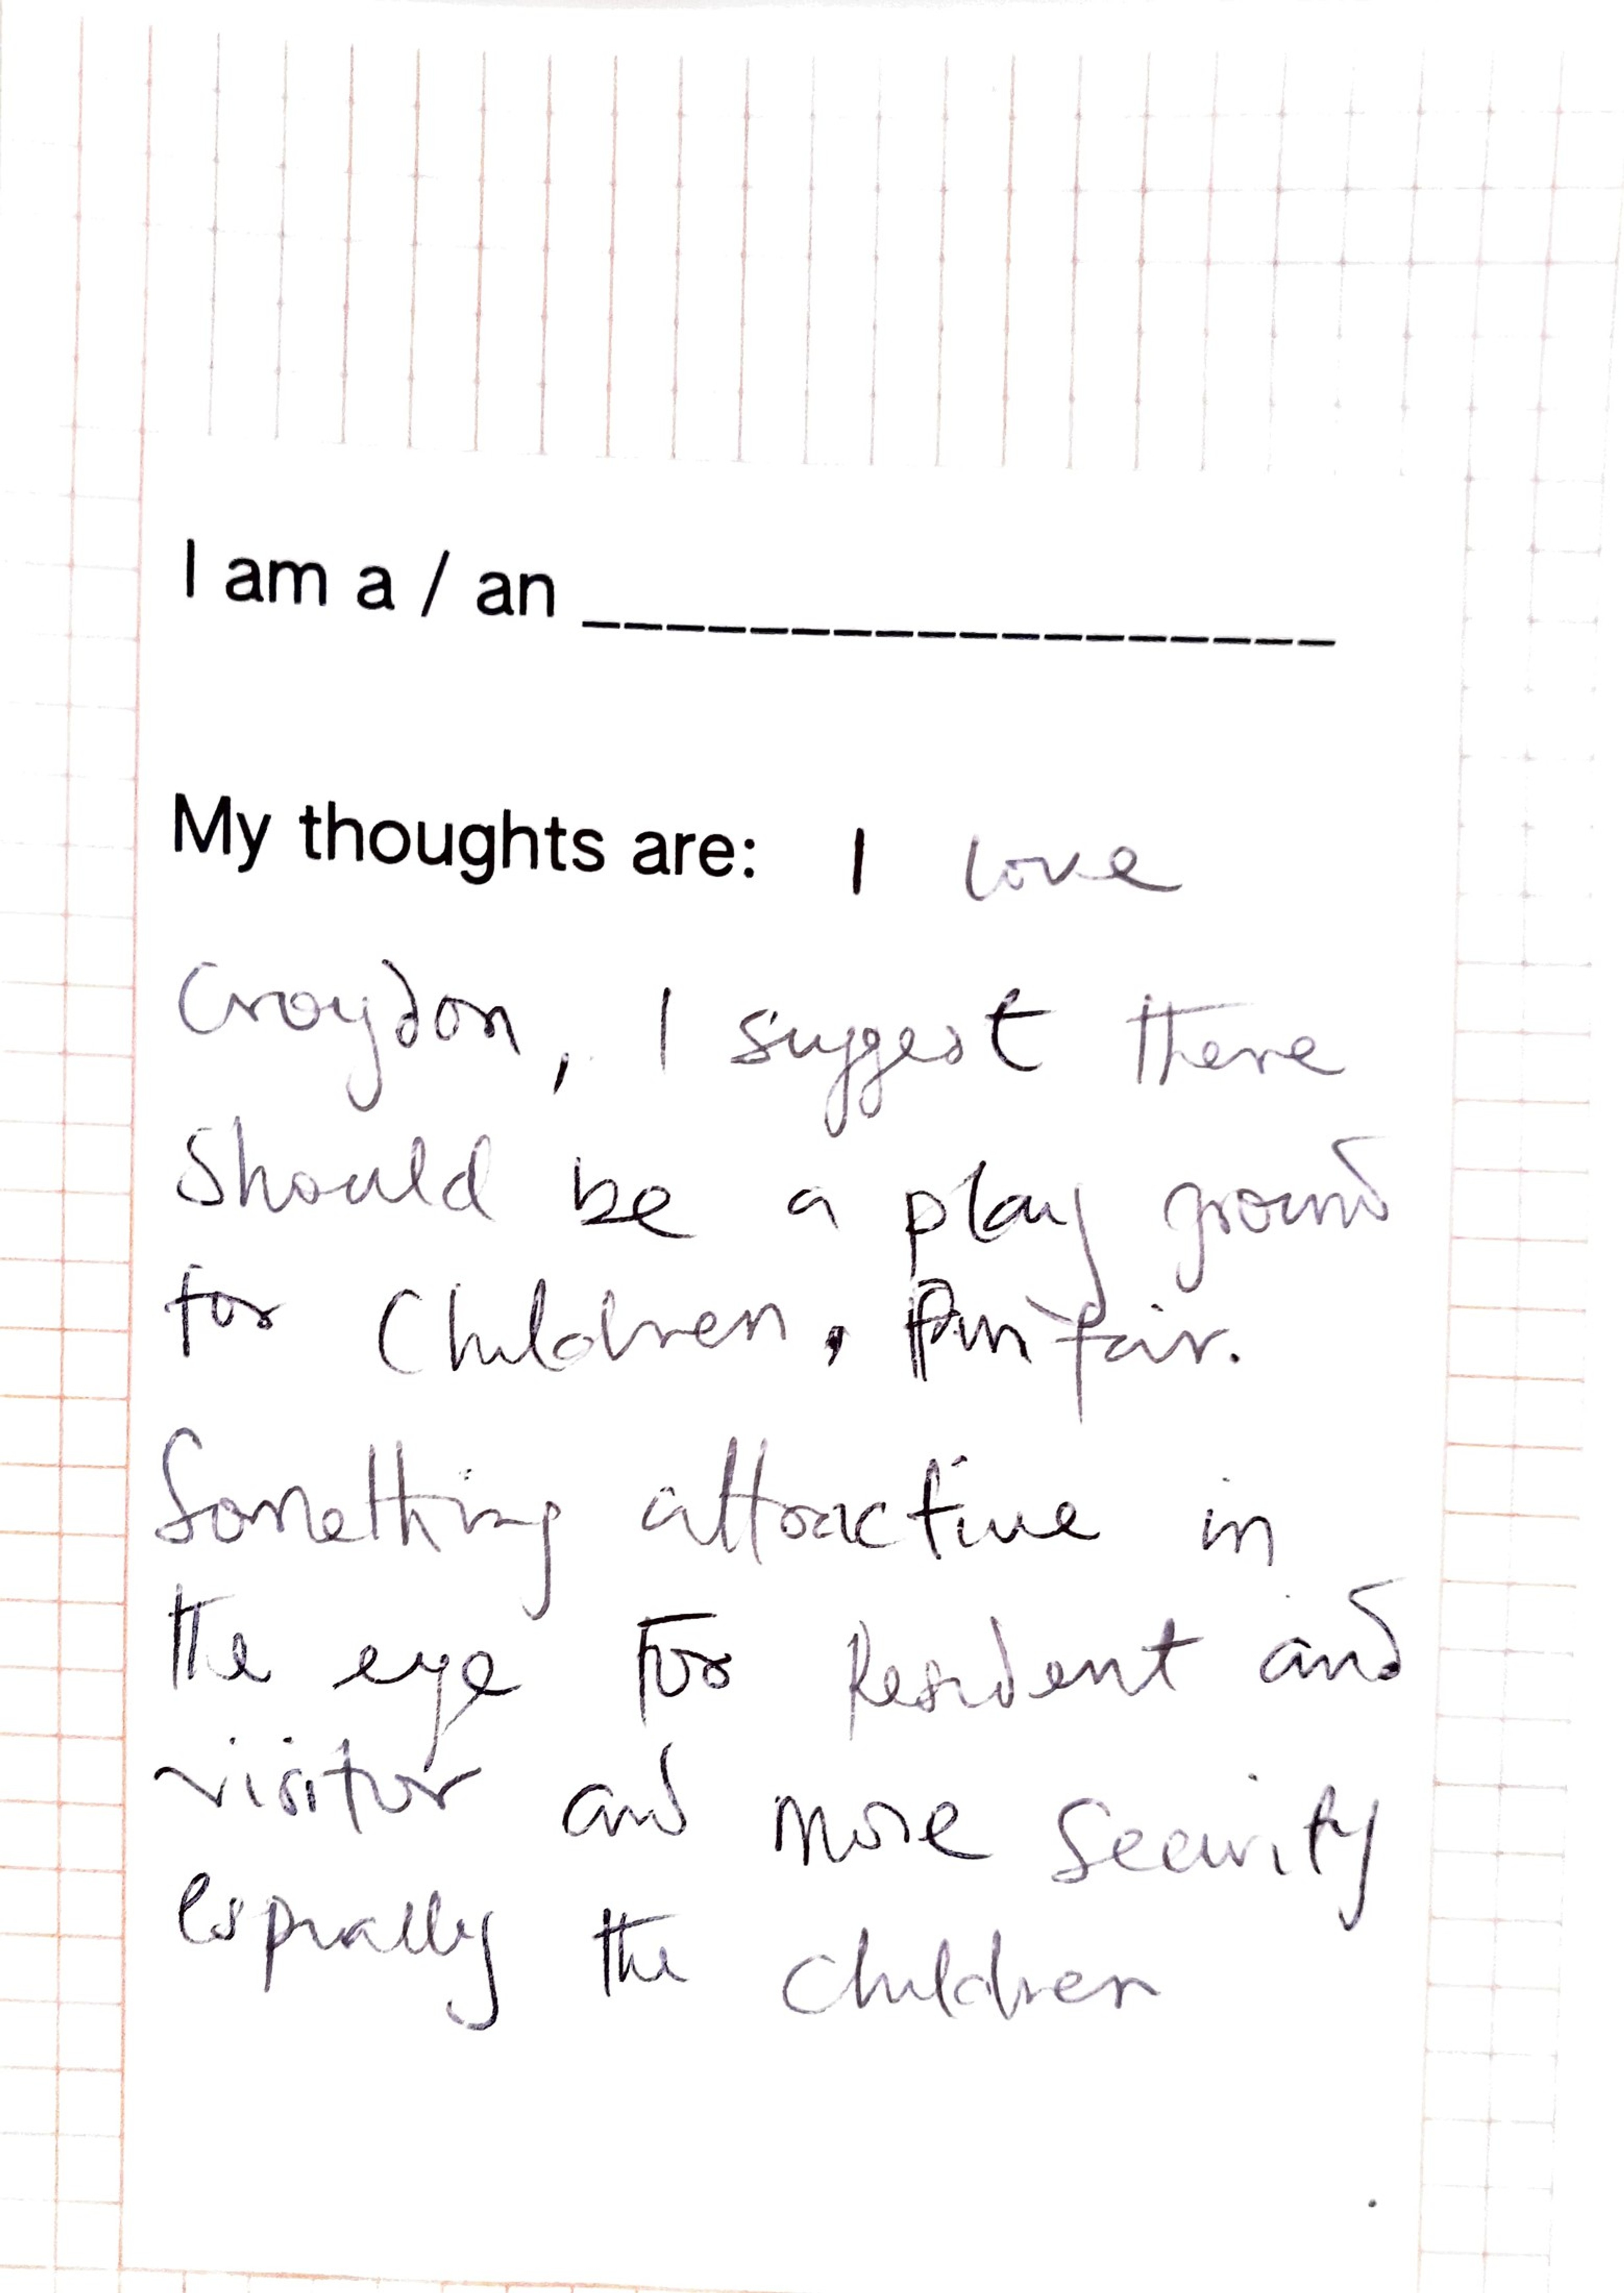 I am a / an ____________________
My thoughts are: I love
Croydon, I suggest there
should be a play ground
for Children. Fun fair.
Something attractive in
the eye For Resident and
visitor and more Security
espially the children